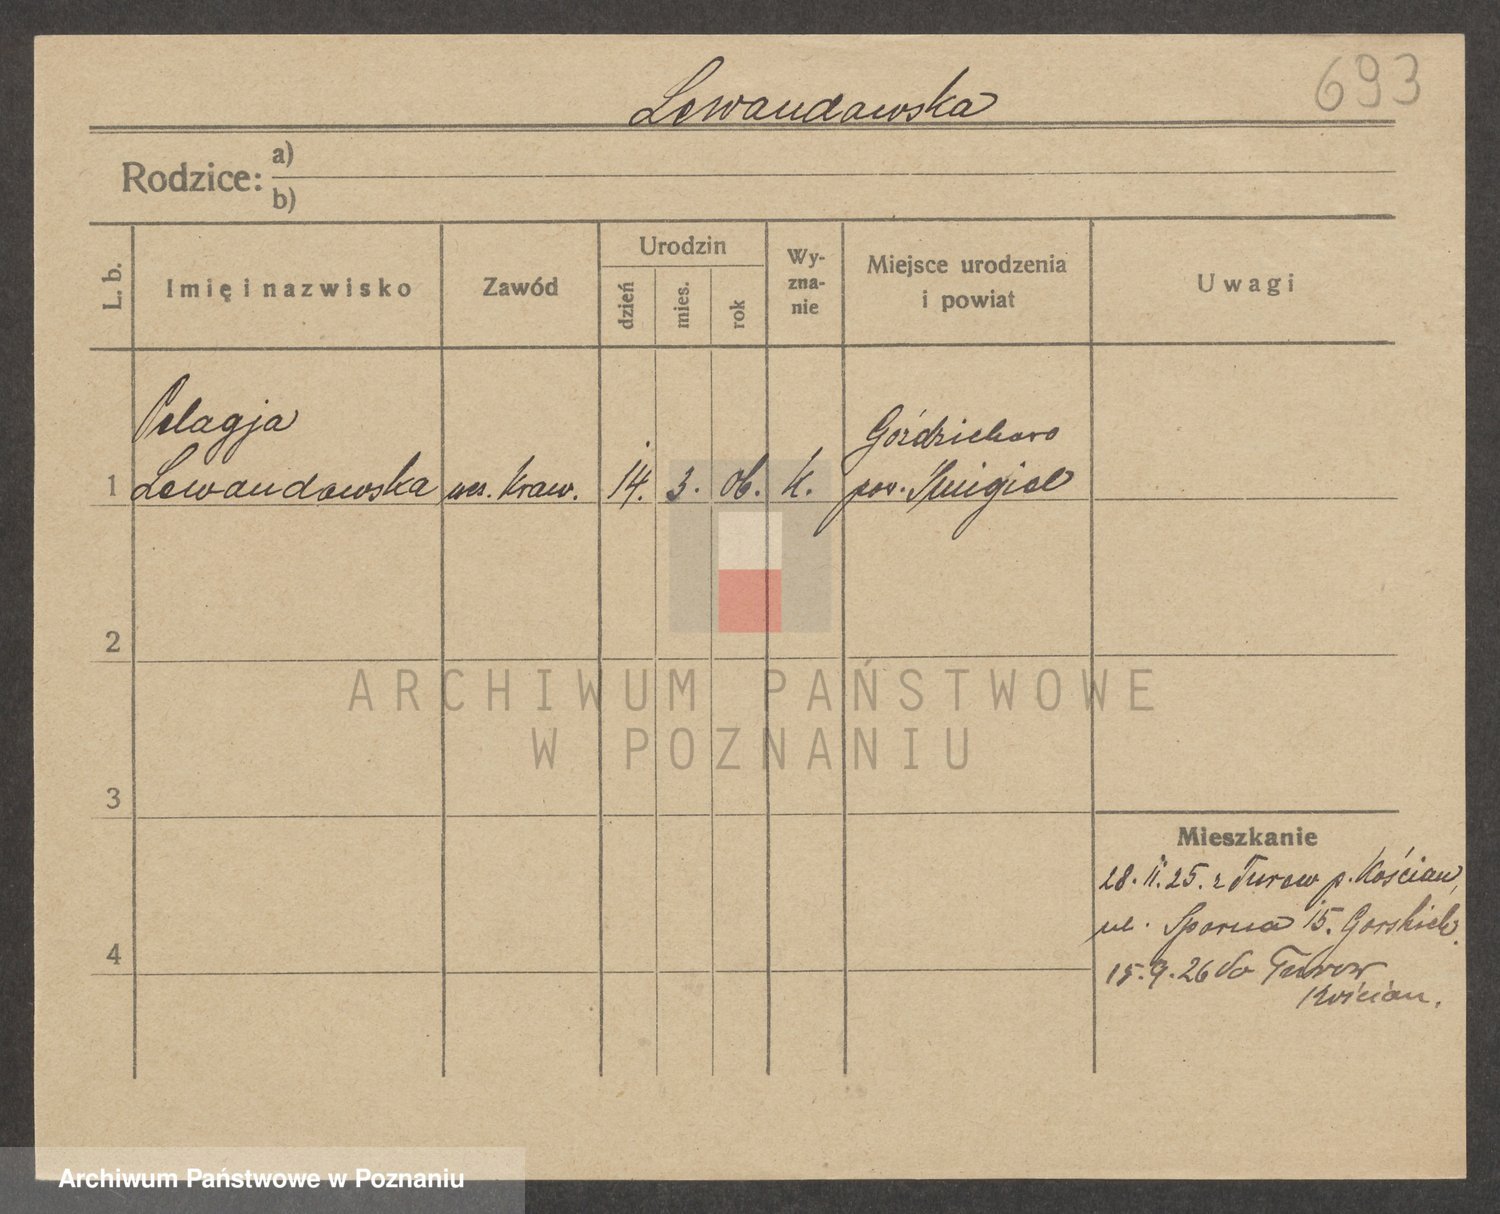 693
Lewandowska
Rodzice: a)
b)
L. b.
Imię i nazwisko
Zawód
Urodzin
dzień
mies.
rok
Wy-
zna-
nie
Miejsce urodzenia
i powiat
Uwagi
Pelagja
Lewandowska
1
ucz. kraw.
14.
3.
06.
k.
Goździchowo
pow. Śmigiel
2
3
4
ARCHIWUM PAŃSTWOWE
W POZNANIU
Mieszkanie
28. II. 25. z Turew p. Kościan,
ul. Sporna 15. Gorskich.
15.9.26 do Turew
Kościan.
Archiwum Państwowe w Poznaniu